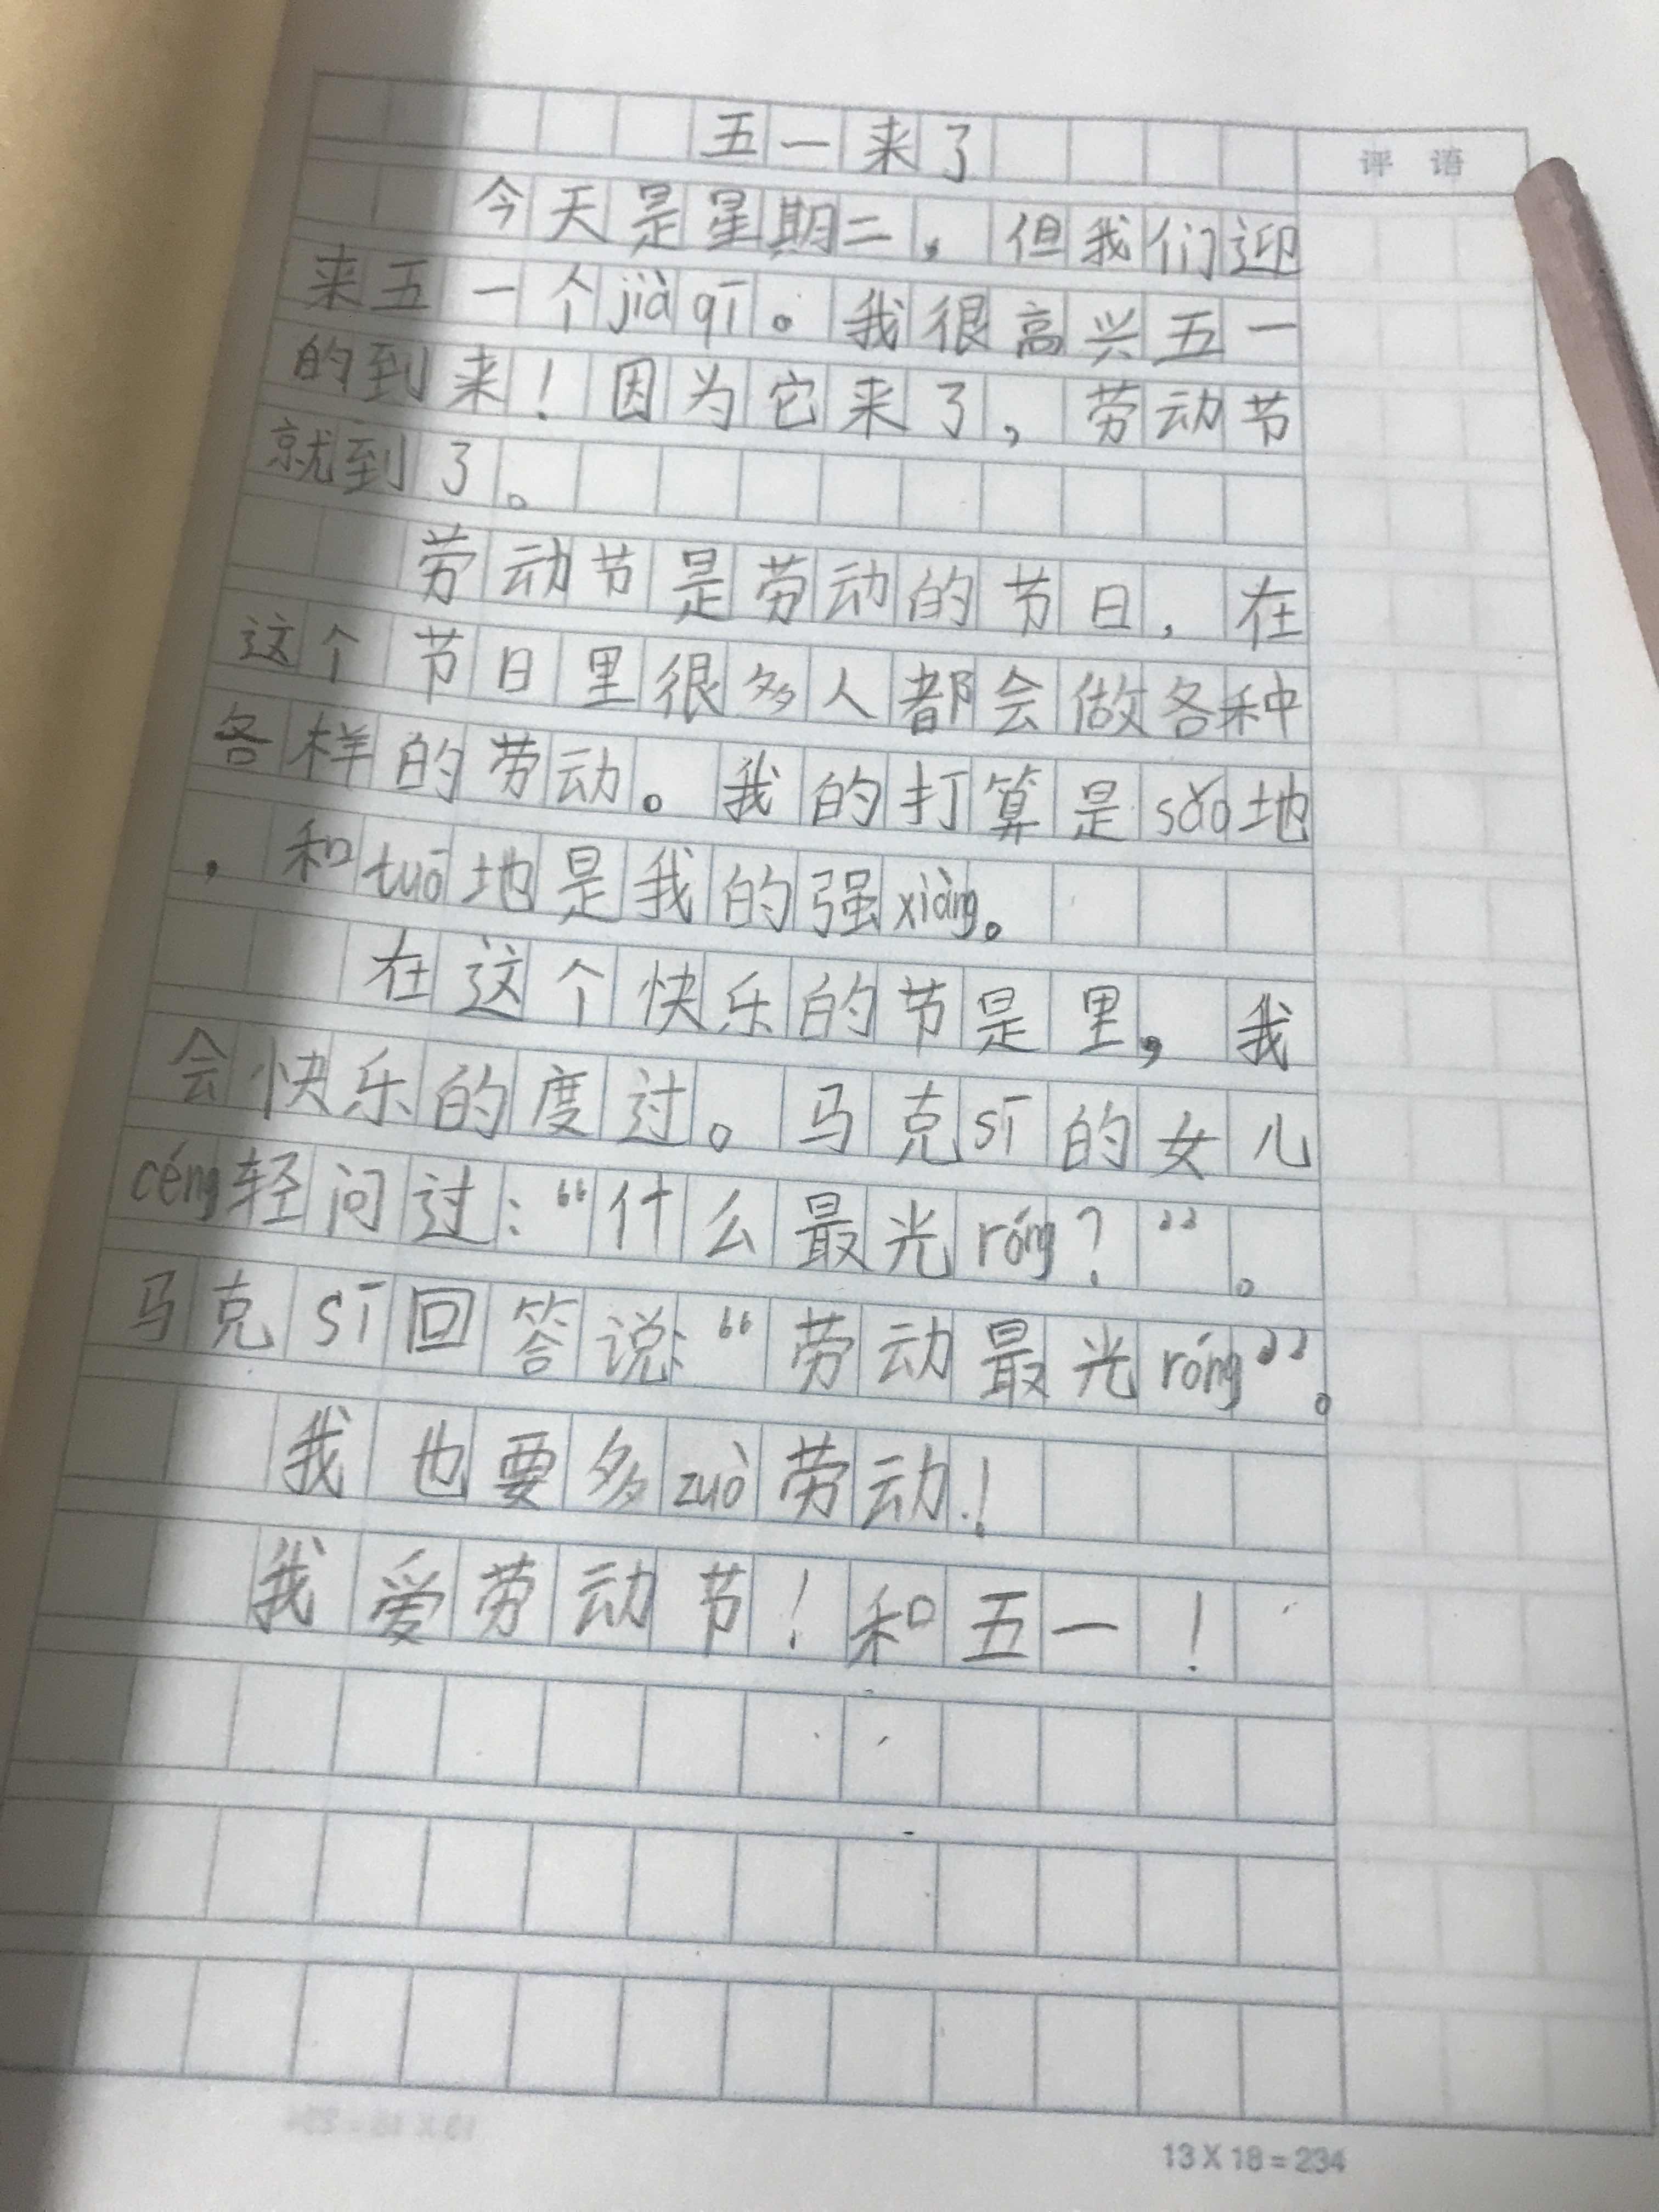 五一来了
评语
今天是星期二，但我们迎
来五一个jià qī。我很高兴五一
的到来！因为它来了，劳动节
就到了。
劳动节是劳动的节日，在
这个节日里很多人都会做各种
各样的劳动。我的打算是sǎo地
，和tuō地是我的强xiàng。
在这个快乐的节是里，我
会快乐的度过。马克sī的女儿
céng轻问过：“什么最光róng？”。
马克sī回答说：“劳动最光róng”。
我也要多zuò劳动！
我爱劳动节！和五一！
13 X 18 = 234